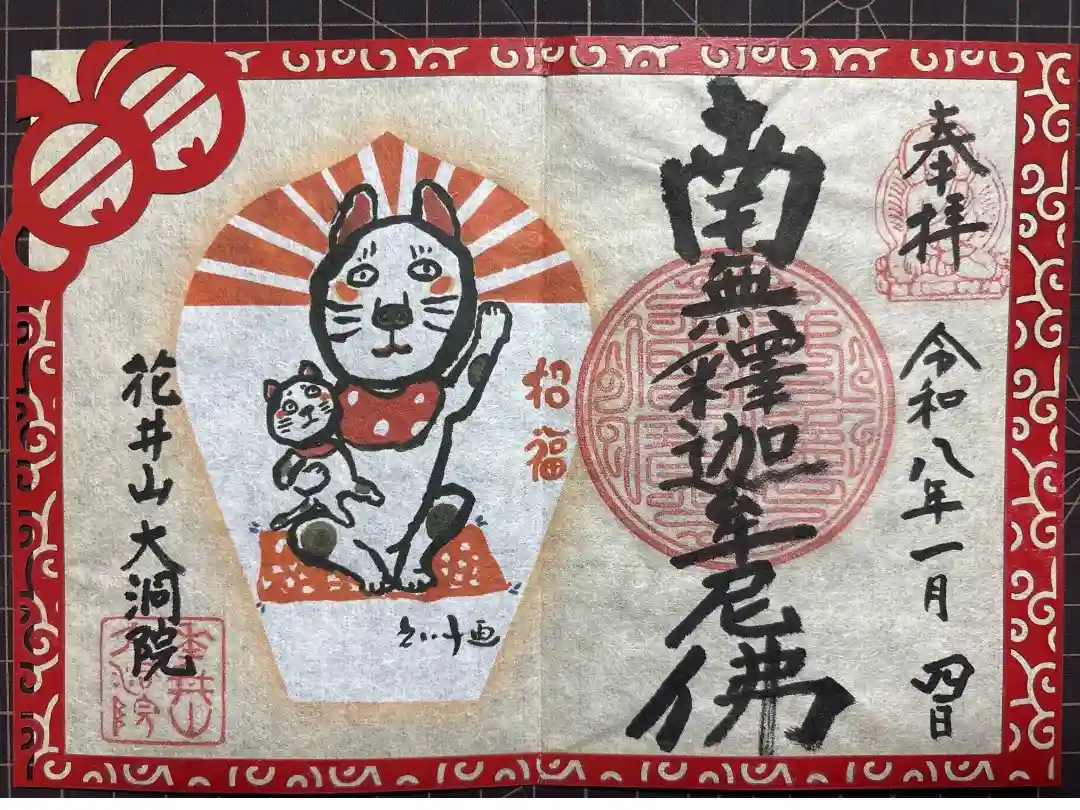 奉拝
令和八年一月四日
南無釋迦牟尼佛
招福
えいす画
花井山大洞院